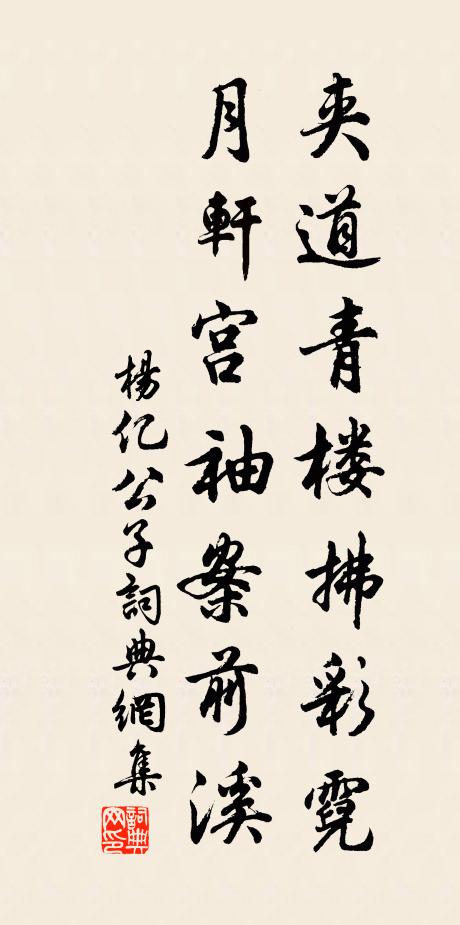 夹道青楼拂彩霓
月軒宫袖案前溪
楊亿公子詞典網集
詞典网印